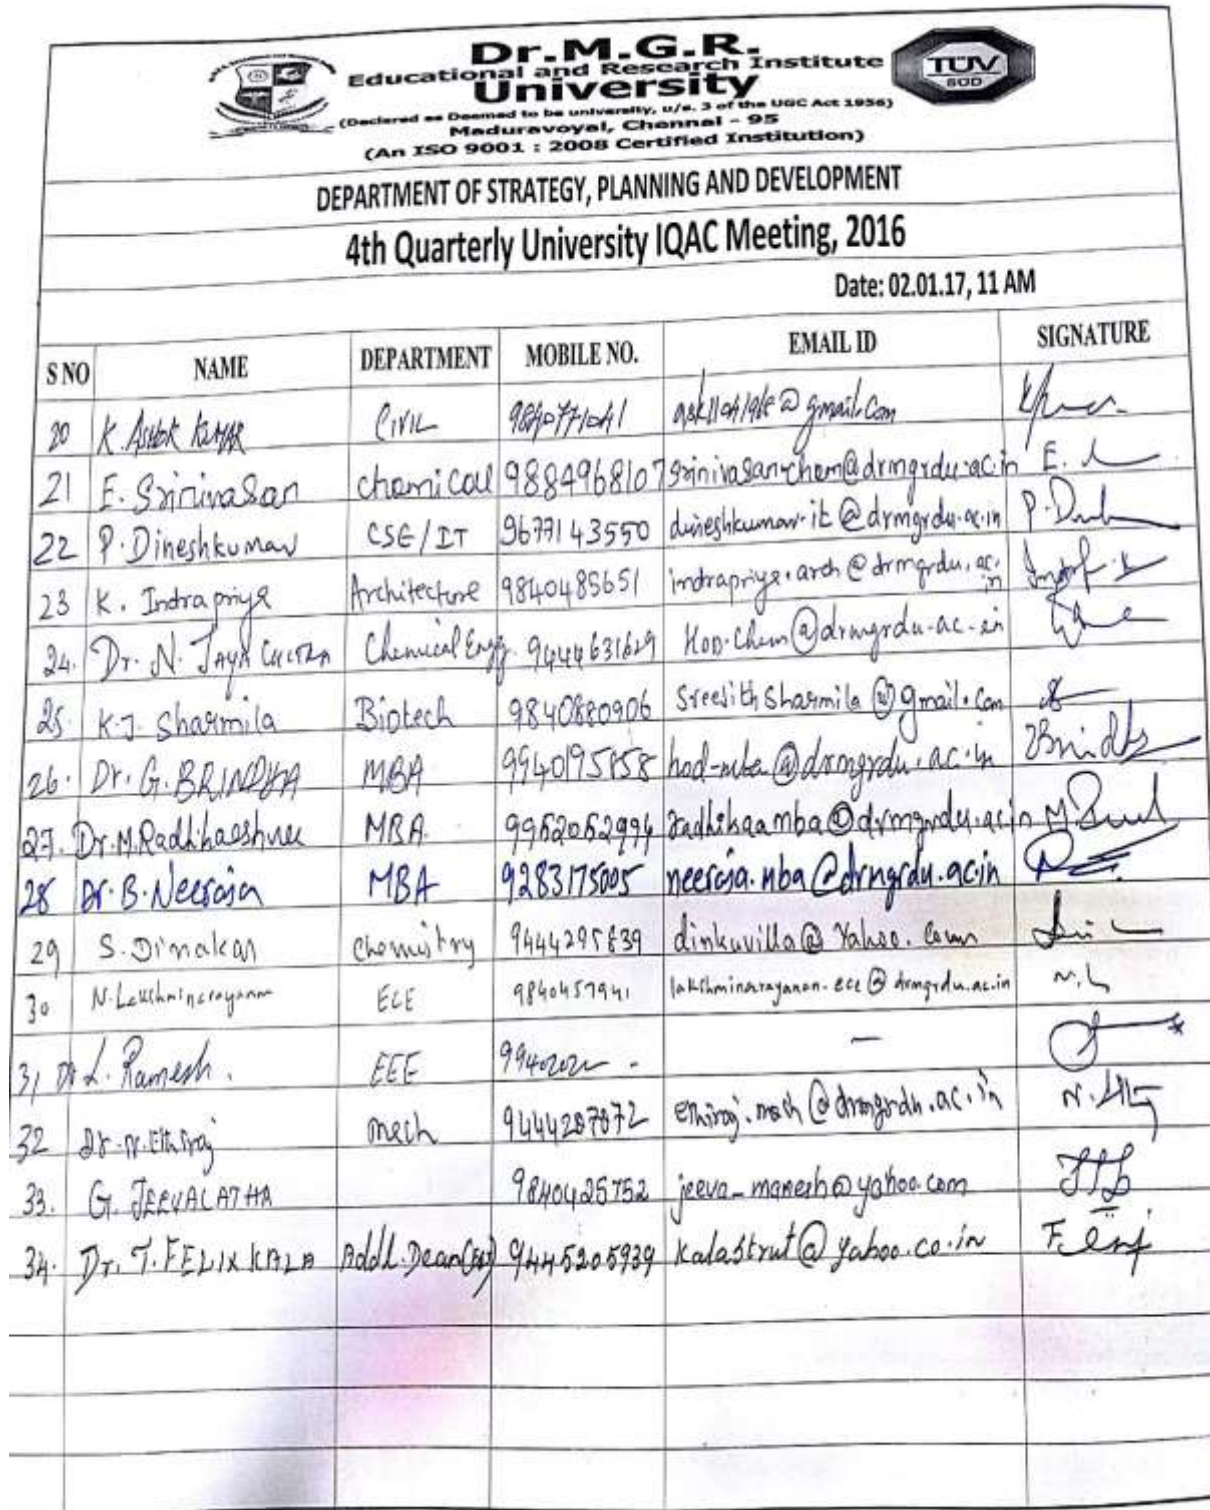 Dr.M.G.R.
Educational and Research Institute
University
(Declared as Deemed to be university, u/s. 3 of the UGC Act 1956)
Maduravoyal, Chennai - 95
(An ISO 9001 : 2008 Certified Institution)
TÜV
SÜD
DEPARTMENT OF STRATEGY, PLANNING AND DEVELOPMENT
4th Quarterly University IQAC Meeting, 2016
Date: 02.01.17, 11 AM
S NO NAME DEPARTMENT MOBILE NO. EMAIL ID SIGNATURE
20 K. ASHOK KUMAR CIVIL 9840771041
21 E. Srinivasan chemical 9884968107 srinivasan-chem@drmgrdu.ac.in E.
22 P. Dineshkumar CSE/IT 9677143550 dineshkumar-it@drmgrdu.ac.in
23 K. Indrapriya Architecture 9840485651 indrapriya.arch@drmgrdu.ac.in
24. Dr. N. JAYA CHITRA Chemical Engg. 9444631629 HOD-Chem@drmgrdu-ac-in
25. K.J. Sharmila Biotech 9840880906 Sreejithsharmila@gmail.com
26. Dr. G. BRINDHA MBA 9940195858 hod-mba@drmgrdu.ac.in
27. MBA 9952052994 radhikaamba@drmgrdu.ac.in
28 Dr. B. Neeraja MBA 9283175005 neeraja.mba@drmgrdu.ac.in
29 S. Dinakar Chemistry 9444295839 dinkuvilla@Yahoo.com
30 N. Lakshminarayanan ECE 9840457941 lakshminarayanan.ece@drmgrdu.ac.in N.L
31 Dr L. Ramesh. EEE —
32 Dr. N. Ethiraj mech 9444287872 ethiraj.mech@drmgrdu.ac.in
33. G. JEEVALATHA 9840425752 jeeva_manesh@yahoo.com
34. Dr. T. FELIX KALA Addl. Dean 9445205939 kalastrut@yahoo.co.in